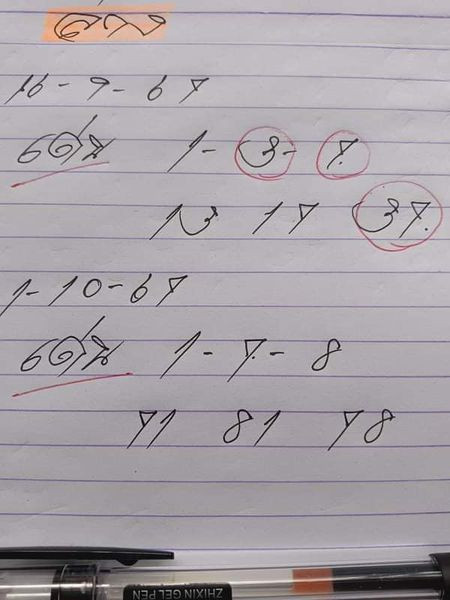 16-9-67
เด่น 1-3-7.
13 17 37.
1-10-67
เด่น 1-7-8
71 81 78
ZHIXIN GEL PEN